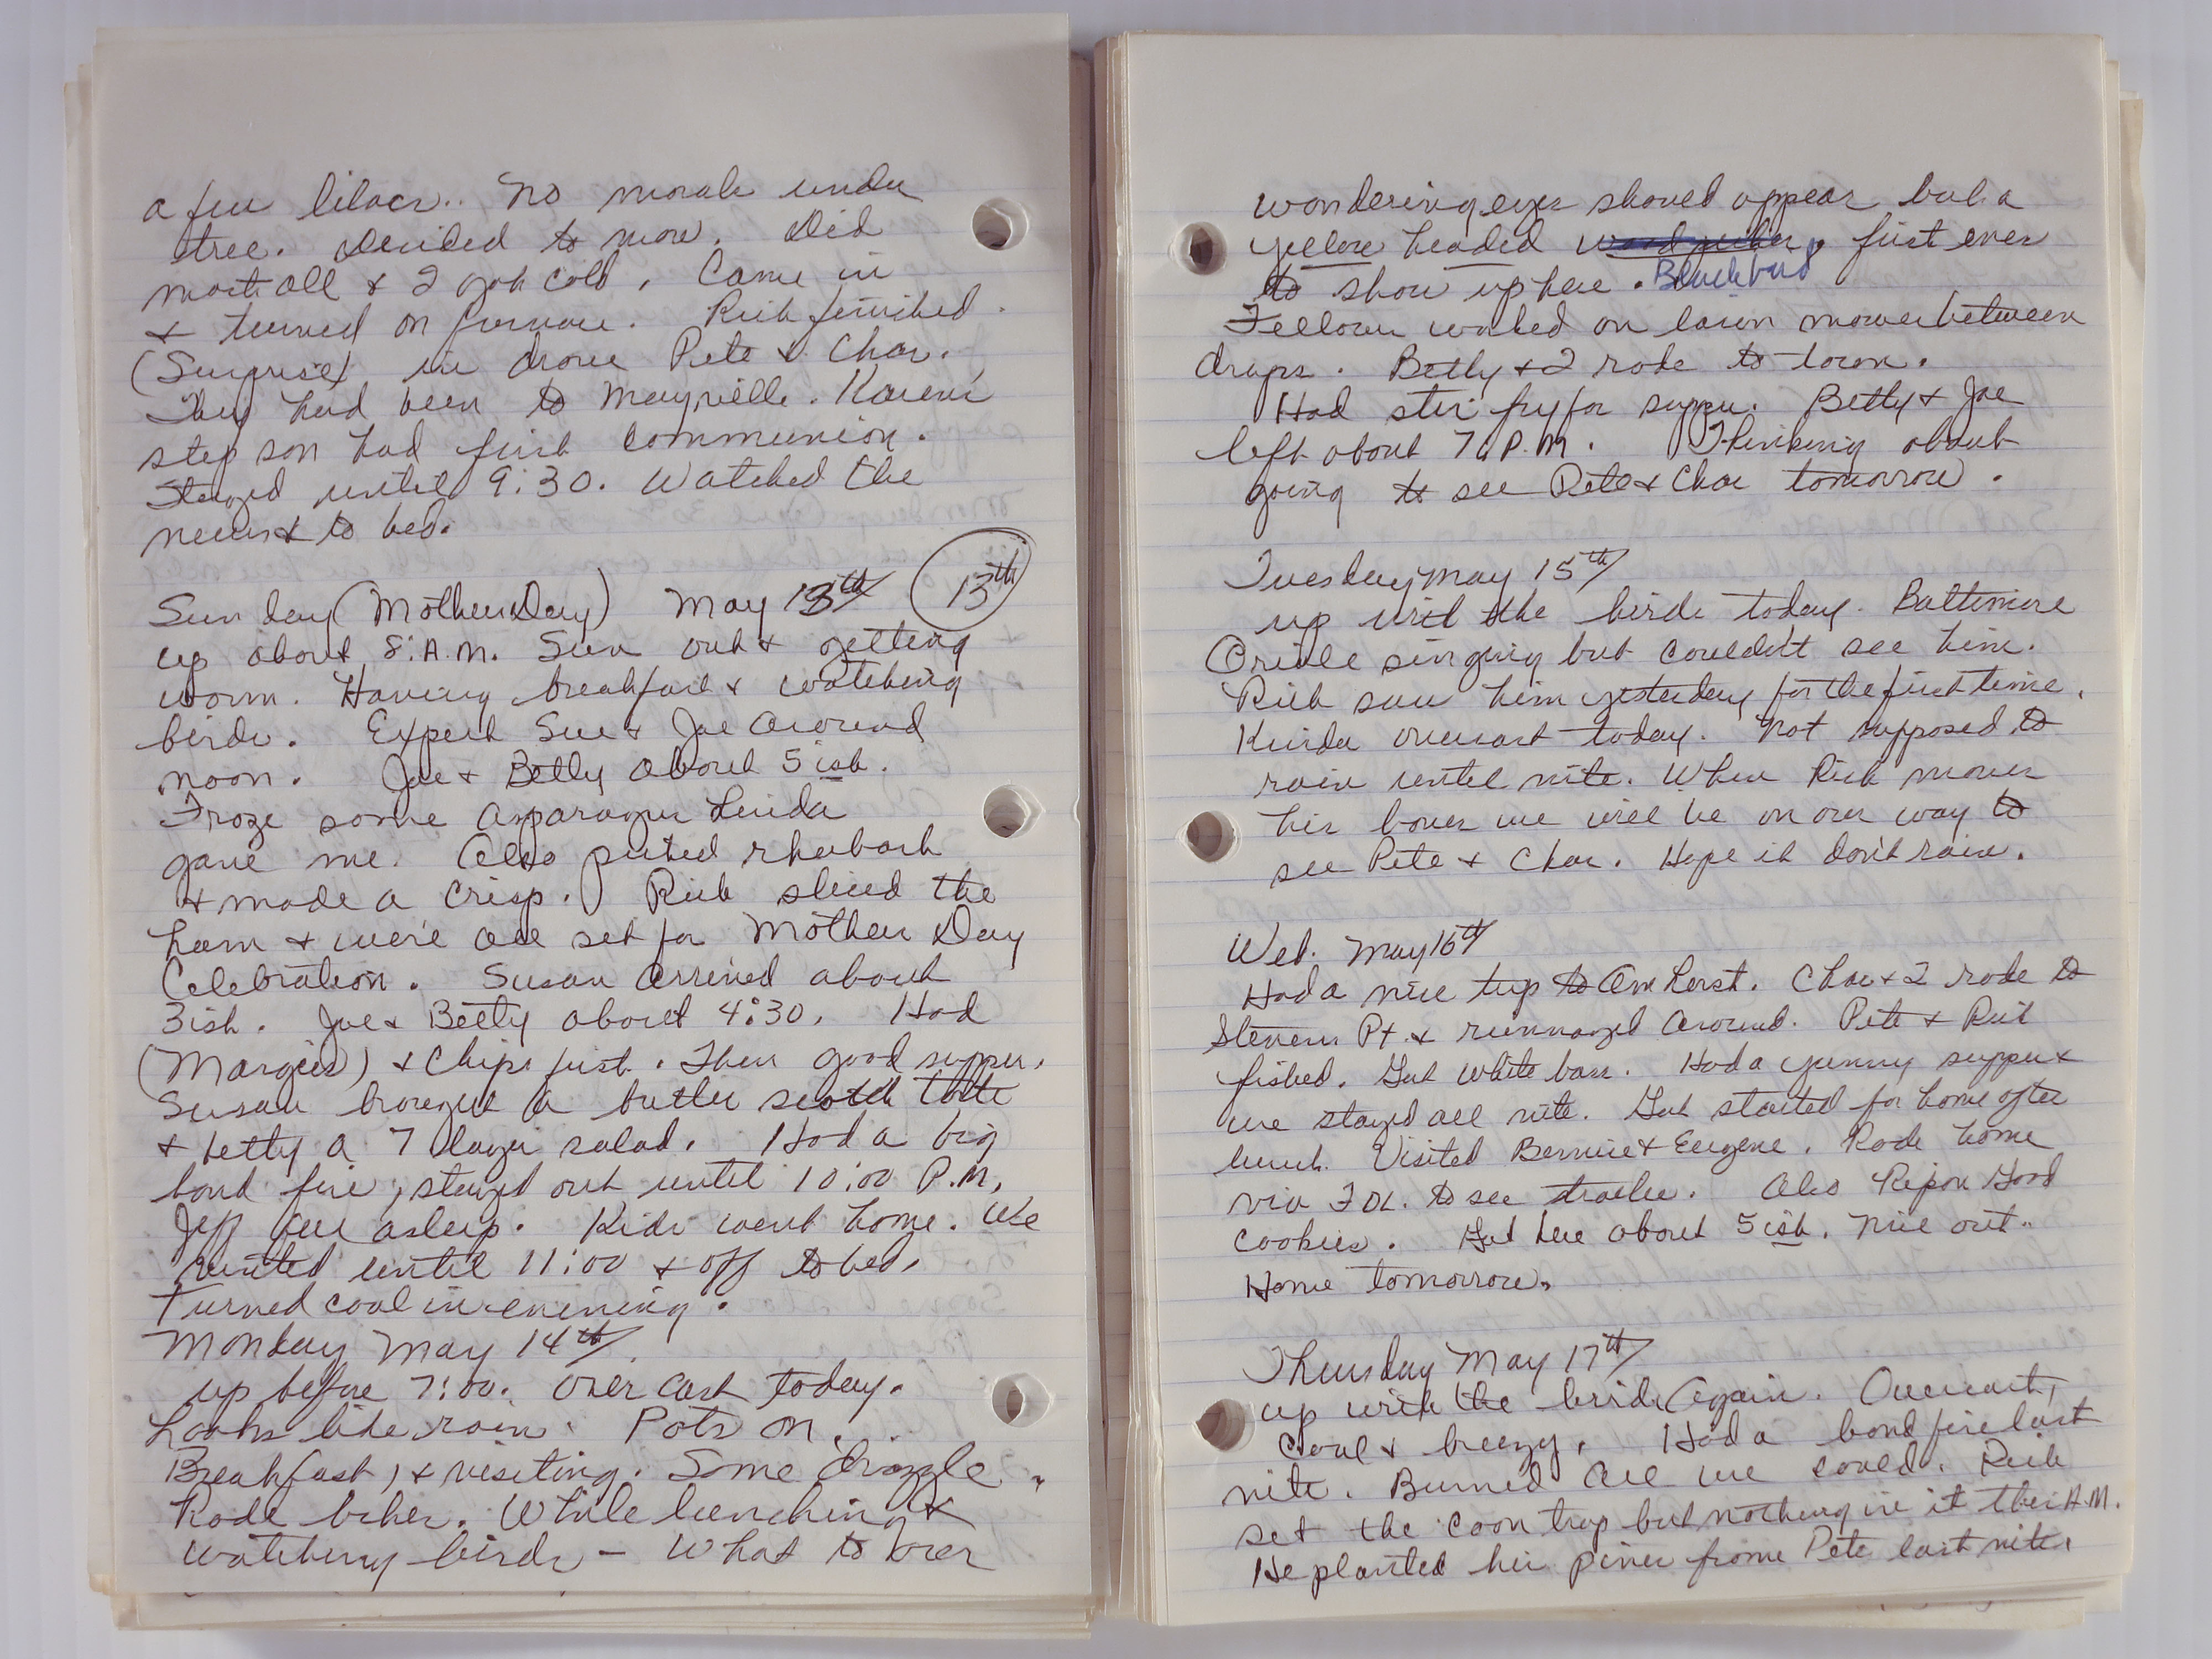 a few lilacs.. No morels under
tree. Decided to mow. Did
most all & I got cold. Came in
& turned on furnace. Rich finished.
(Surprise) in drove Pete & Char.
They had been to Mayville. Karen's
step son had first communion.
Stayed until 9:30. Watched the
news & to bed.
Sunday (Mothers Day) May 13th (13th)
up about 8: A.M. Sun out & getting
warm. Having breakfast & watching
birds. Expect Sue & Joe around
noon. Joe & Betty about 5 ish.
Froze some asparagus Linda
gave me. Also picked rhubarb
& made a crisp. Rich sliced the
ham & we're all set for Mothers Day
Celebration. Susan arrived about
3ish. Joe & Betty about 4:30. Had
(Margies) & Chips first. Then good supper.
Susan brought a butter scotch torte
& betty a 7 layer salad. Had a big
bond fire, stayed out until 10:00 P.M.
Jeff fell asleep. Kids went home. We
visited until 11:00 & off to bed.
Turned cool in evening.
Monday May 14th
up before 7:00. Over cast today.
Looks like rain. Pots on.
Breakfast, & visiting. Some drizzle..
Rode bikes. While lunching &
watching birds - What to over
wondering eyes should appear but a
yellow headed woodpecker, first ever
to show up here. Blackbird
Fellows worked on lawn mower between
drops. Betty & I rode to town.
Had stir fry for supper. Betty & Joe
left about 7: P.M. Thinking about
going to see Pete & Char tomorrow.
Tuesday May 15th
up with the birds today. Baltimore
Oriole singing but couldn't see him.
Rich saw him yesterday for the first time.
Kinda overcast today. Not supposed to
rain until nite. When Rich moves
his bowes we will be on our way to
see Pete & Char. Hope it don't rain.
Wed. May 16th
Had a nice trip to Amherst. Char & I rode to
Stevens Pt. & rummaged around. Pete & Rich
fished. Got white bass. Had a yummy supper &
we stayed all nite. Got started for home after
lunch. Visited Bernice & Eugene. Rode home
via FDL. to see trailer. Also Ripon Good
Cookies. Got here about 5 ish. Nice out..
Home tomorrow.
Thursday May 17th
up with the birds again. Overcast,
Cool & breezy. Had a bond fire last
nite. Burned all we could. Rich
set the coon trap but nothing in it this A.M.
He planted his pines frome Pete last nite.